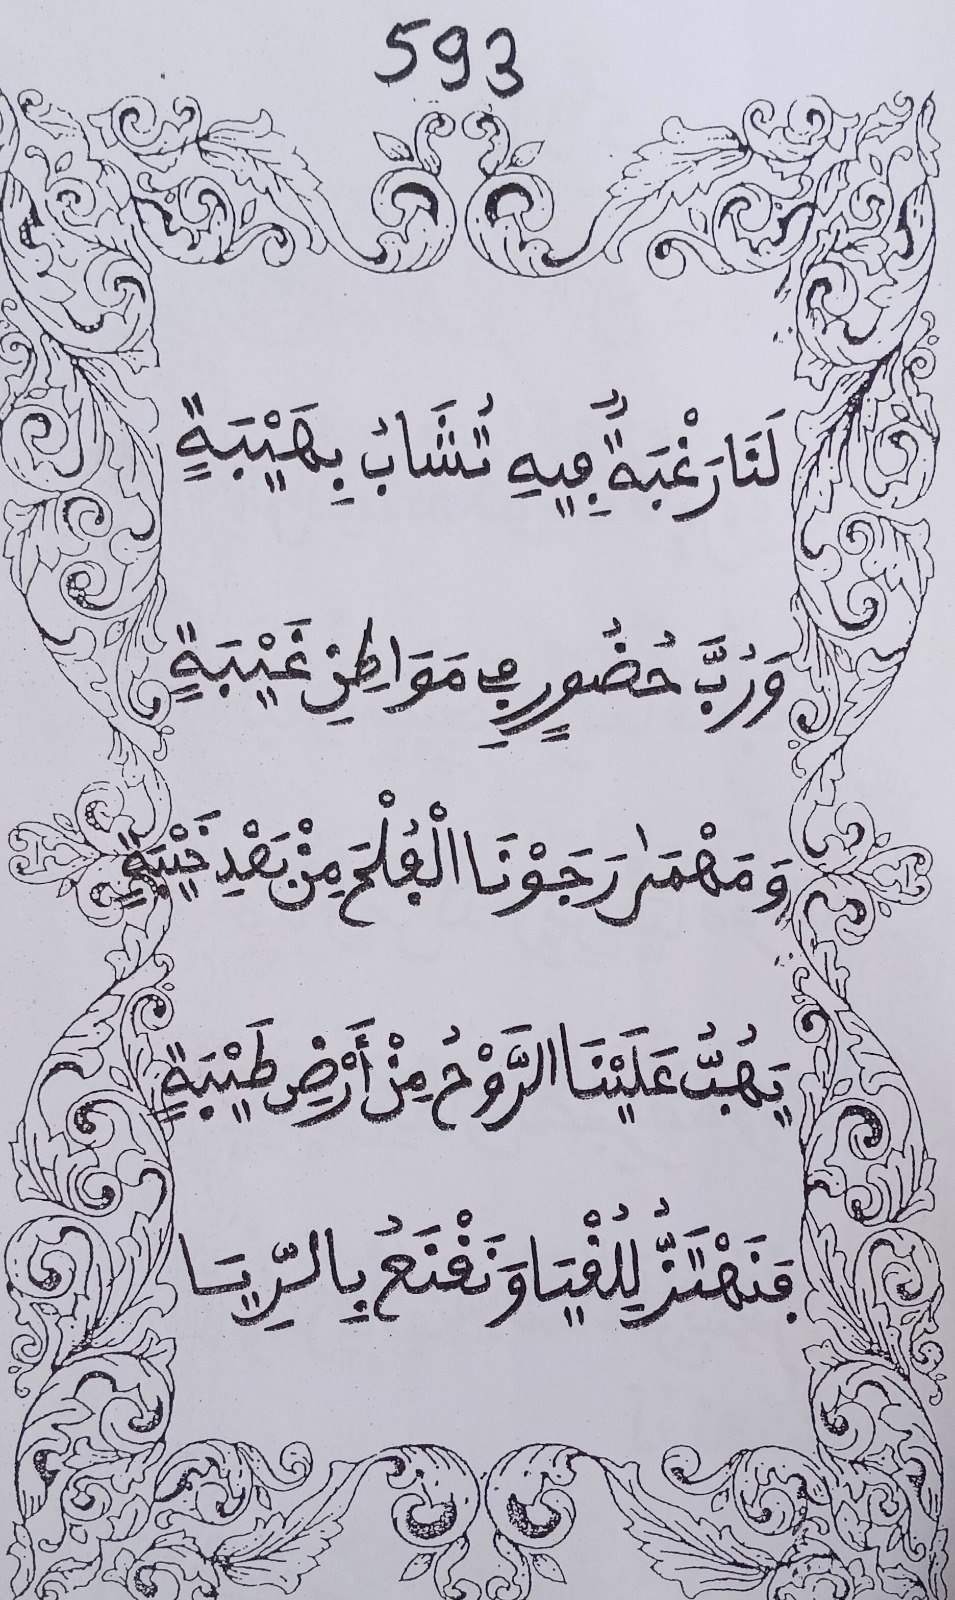 593
لَنَا رَغْبَةٌ فِيهِ تُشَابُ بِهَيْبَةٍ
وَرُبَّ حُضُورٍ فِي مَوَاطِنِ غَيْبَةٍ
وَمَهْمَا رَجَوْنَا الْقُلْحَ مِنْ بَعْدِ خَيْبَةٍ
يَهُبُّ عَلَيْنَا الرَّوْحُ مِنْ أَرْضِ طَيْبَةٍ
فَنَهْتَزُّ لِلُقْيَا وَنَقْنَعُ بِالرِّيَا